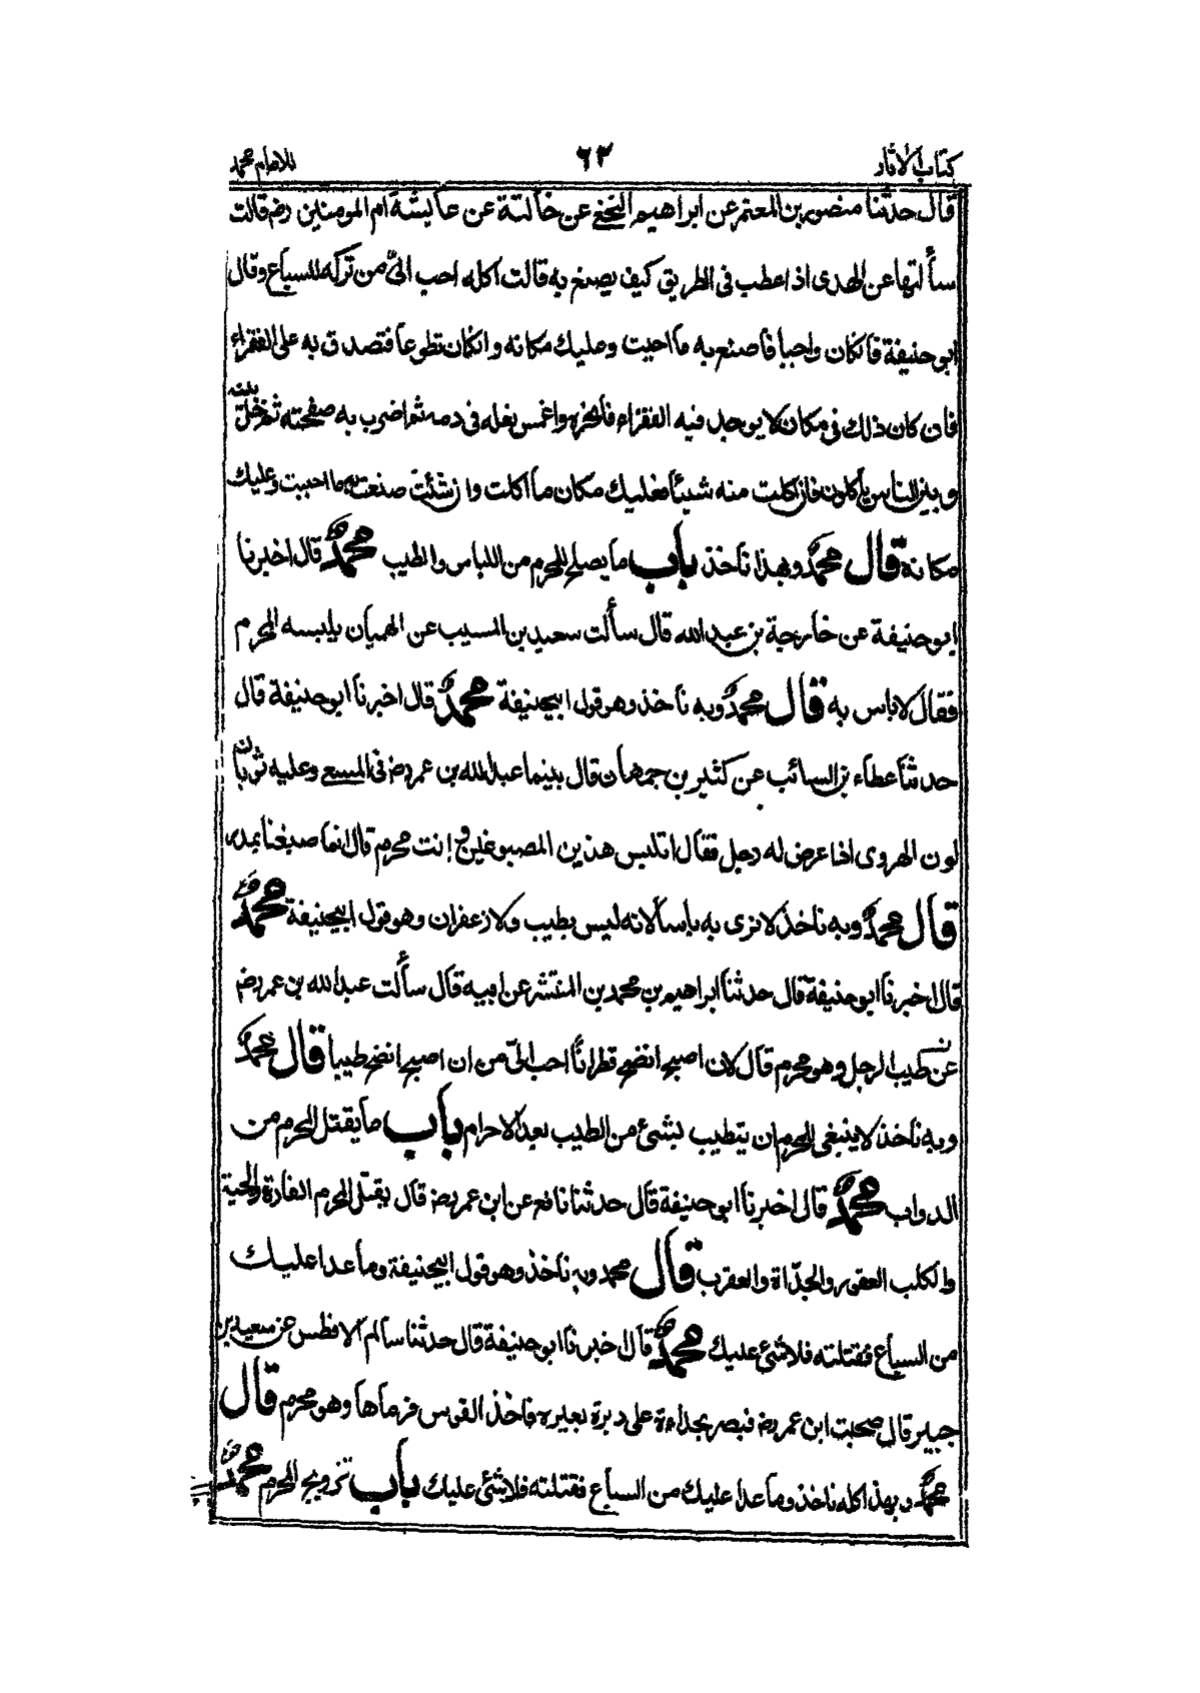 كتاب الاثار ٦٢ للامام محمد
قال حدثنا منصور بن المعتمر عن ابراهيم النخعي عن خالته عن عايشة ام المومنين رضـ قالت
سألتها عن الهدى اذا عطب فى الطريق كيف يصنع به قالت اكله احب الىّ من تركه للسباع وقال
ابو حنيفة فانكان واجبا فاصنع به ما احببت وعليك مكانه وانكان تطوعا فتصدق به على الفقراء
فان كان ذلك فى مكان لا يوجد فيه الفقراء فانحره واغمس نعله فى دمه ثم اضرب به صفحته ثم خلّ بينه
وبين الناس ياكلون فان اكلت منه شيئا فعليك مكان ما اكلت وان شئت صنعت به ما احببت وعليك
مكانه قال محمد وبهذا ناخذ باب ما يصلح للمحرم من اللباس والطيب محمد قال اخبرنا
ابو حنيفة عن خارجة بن عبد الله قال سألت سعيد بن المسيب عن الهميان يلبسه المحرم
فقال لاباس به قال محمد وبه ناخذ وهو قول ابيحنيفة محمد قال اخبرنا ابو حنيفة قال
حدثنا عطاء بن السائب عن كثير بن جمهان قال بينما عبد الله بن عمر رضـ فى المسعى وعليه ثوبان
لون الهروى اذا عرض له رجل فقال اتلبس هذين المصبوغين وانت محرم قال انما صبغنا بمدر
قال محمد وبه ناخذ لا نرى به بأسا لانه ليس بطيب ولا زعفران وهو قول ابيحنيفة محمد
قال اخبرنا ابو حنيفة قال حدثنا ابراهيم بن محمد بن المنتشر عن ابيه قال سألت عبد الله بن عمر رضـ
عن طيب الرجل وهو محرم قال لان اصبح انضح قطرانا احب الىّ من ان اصبح انضح طيبا قال محمد
وبه ناخذ لا ينبغى للمحرم ان يتطيب بشئ من الطيب بعد الاحرام باب ما يقتل المحرم من
الدواب محمد قال اخبرنا ابو حنيفة قال حدثنا نافع عن ابن عمر رضـ قال يقتل المحرم الفارة والحية
والكلب العقور والحدّاة والعقرب قال محمد وبه ناخذ وهو قول ابيحنيفة وما عدا عليك
من السباع فقتلته فلا شئ عليك محمد قال اخبرنا ابو حنيفة قال حدثنا سالم الافطس عن سعيد بن
جبير قال صحبت ابن عمر رضـ فبصر بحداءة على دبرة بعيره فاخذ القوس فرماها وهو محرم قال
محمد وبهذا كله ناخذ وما عدا عليك من السباع فقتلته فلا شئ عليك باب تزويج المحرم محمد